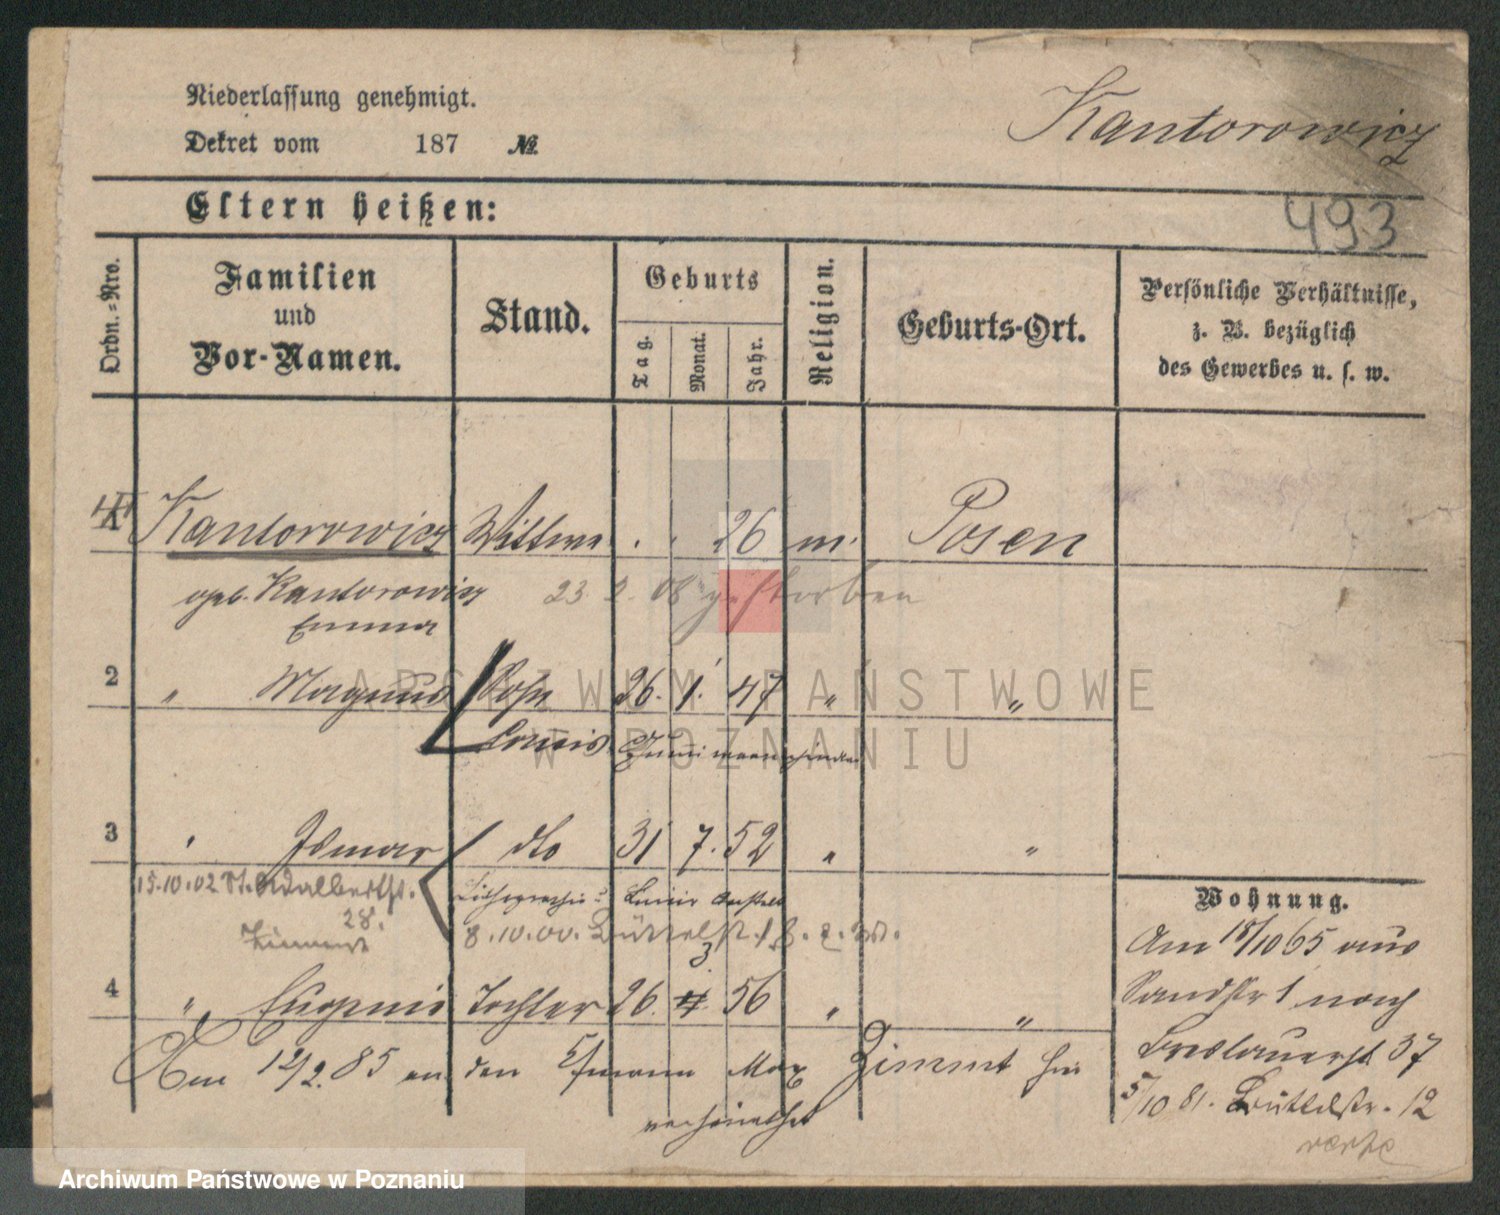 Niederlassung genehmigt.
Kantorowicz
Dekret vom 187 №
Eltern heißen:
493
Ordn.-Nro.
Familien
und
Vor-Namen.
Stand.
Geburts
Tag.
Monat.
Jahr.
Religion.
Geburts-Ort.
Persönliche Verhältnisse,
z. B. bezüglich
des Gewerbes u. s. w.
1 Kantorowicz Wittwe . . 26 m. Posen
geb. Kantorowicz 23. 2. 08 gestorben
Emma
2 " Magnus Sohn 26. 1. 47 " "
Louis
3 " Ismar dto 31 7. 52 " "
15.10.02 St. Adalbertst.
28.
Lithographie u. Linir Anstalt
8.10.00. Büttelst.
3
4 " Eugenie Tochter 26. 56 " "
Am 12/2. 85 an den Max Zimmt hier
verheirathet
Wohnung.
Am 18/10 65 aus
Sandstr 1 nach
Breslauerst 37
5/10 81. Büttelstr. 12
ARCHIWUM PAŃSTWOWE
W POZNANIU
Archiwum Państwowe w Poznaniu